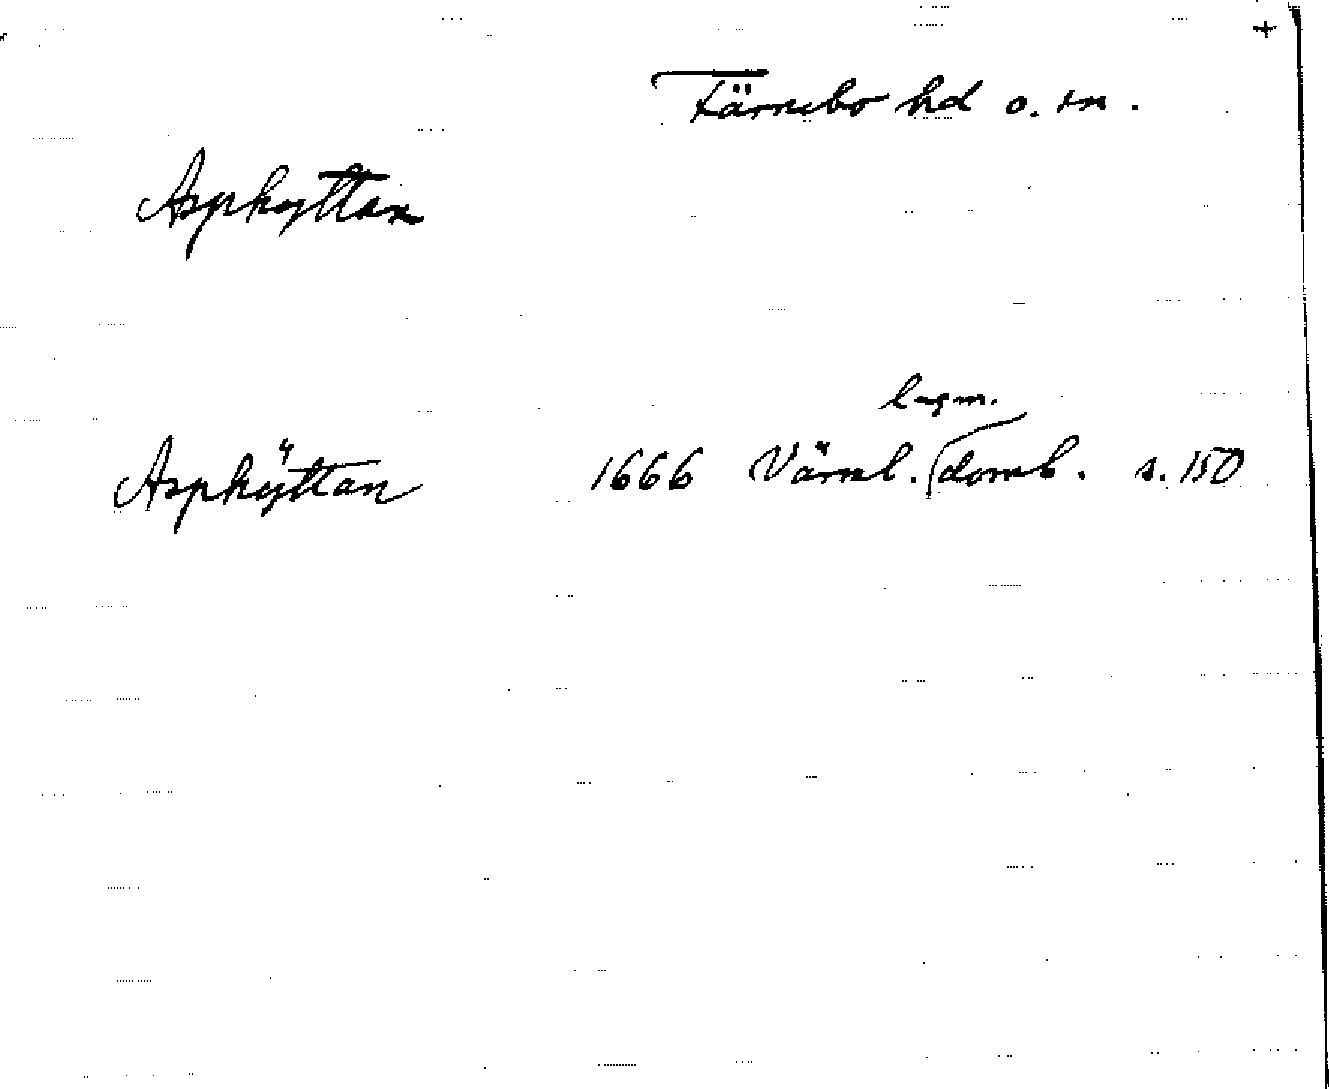 +
Färnebo hd o. sn.
Asphyttan
lagm.
Asphÿttan 1666 Värml. domb. s. 150